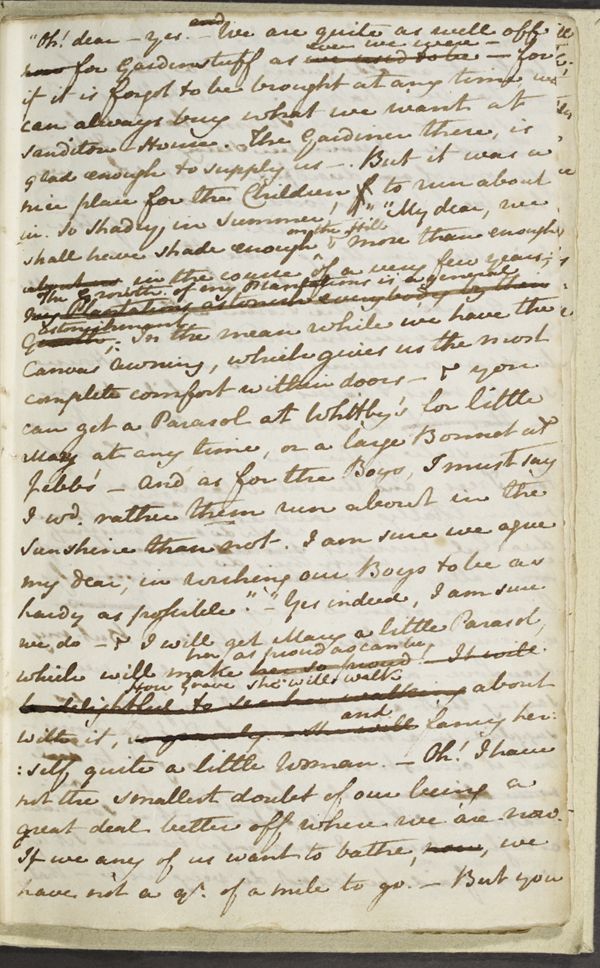 "Oh! dear – yes. – and We are quite as well off
now for Gardenstuff as we used to be – ever we were – for
if it is forgot to be brought at any time we
can always buy what we want at
Sanditon House. – The Gardiner there, is
glad enough to supply us –. But it was a
nice place for the Children to run about
in. So shady in Summer!" "My dear, we
shall have shade enough on the Hill & more than enough
in the course of a very few years;
The Growth of my Plantations is a general
my Plantations astonish everybody by their
astonishment
Growth. In the mean while we have the
Canvas Awning, which gives us the most
complete comfort within doors – & you
can get a Parasol at Whitby's for little
Mary at any time, or a large Bonnet at
Jebbs' – And as for the Boys, I must say
I wd. rather them run about in the
Sunshine than not. I am sure we agree
my dear, in wishing our Boys to be as
hardy as possible." – "Yes indeed, I am sure
we do – & I will get Mary a little Parasol,
which will make her as proud as can be.
her so proud – It will
How Grave she will walk
be delightful to see her walking about
with it, and she will fancy her:
:self quite a little Woman. – Oh! I have
not the smallest doubt of our being a
great deal better off where we are now.
If we any of us want to bathe, now, we
have not a qr. of a mile to go. – But you